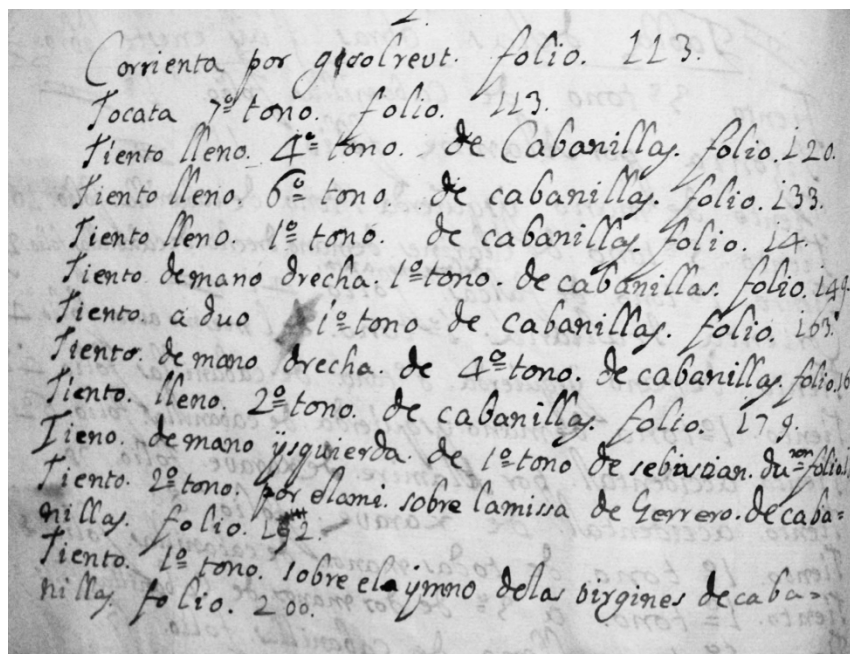 2.
Corrienta por gesolreut. folio. 113.
Tocata 7º tono. folio. 113.
Tiento lleno. 4º tono. de Cabanillas. folio. 120.
Tiento lleno. 6º tono. de cabanillas. folio. 133.
Tiento lleno. 1º tono. de cabanillas. folio. 14.
Tiento de mano drecha. 1º tono. de cabanillas. folio. 149.
Tiento a duo 1º tono de cabanillas. folio. 163.
Tiento. de mano drecha. de 4º tono. de cabanillas. folio. 16
Tiento. lleno. 2º tono. de cabanillas. folio. 179.
Tieno. de mano ÿsquierda. de 1º tono de sebastian. duron folio
Tiento. 2º tono. por elami. sobre la missa de Gerrero. de caba-
nillas. folio. 192.
Tiento. 1º tono. sobre el ÿmno de las birgines de caba=
nillas. folio. 200.